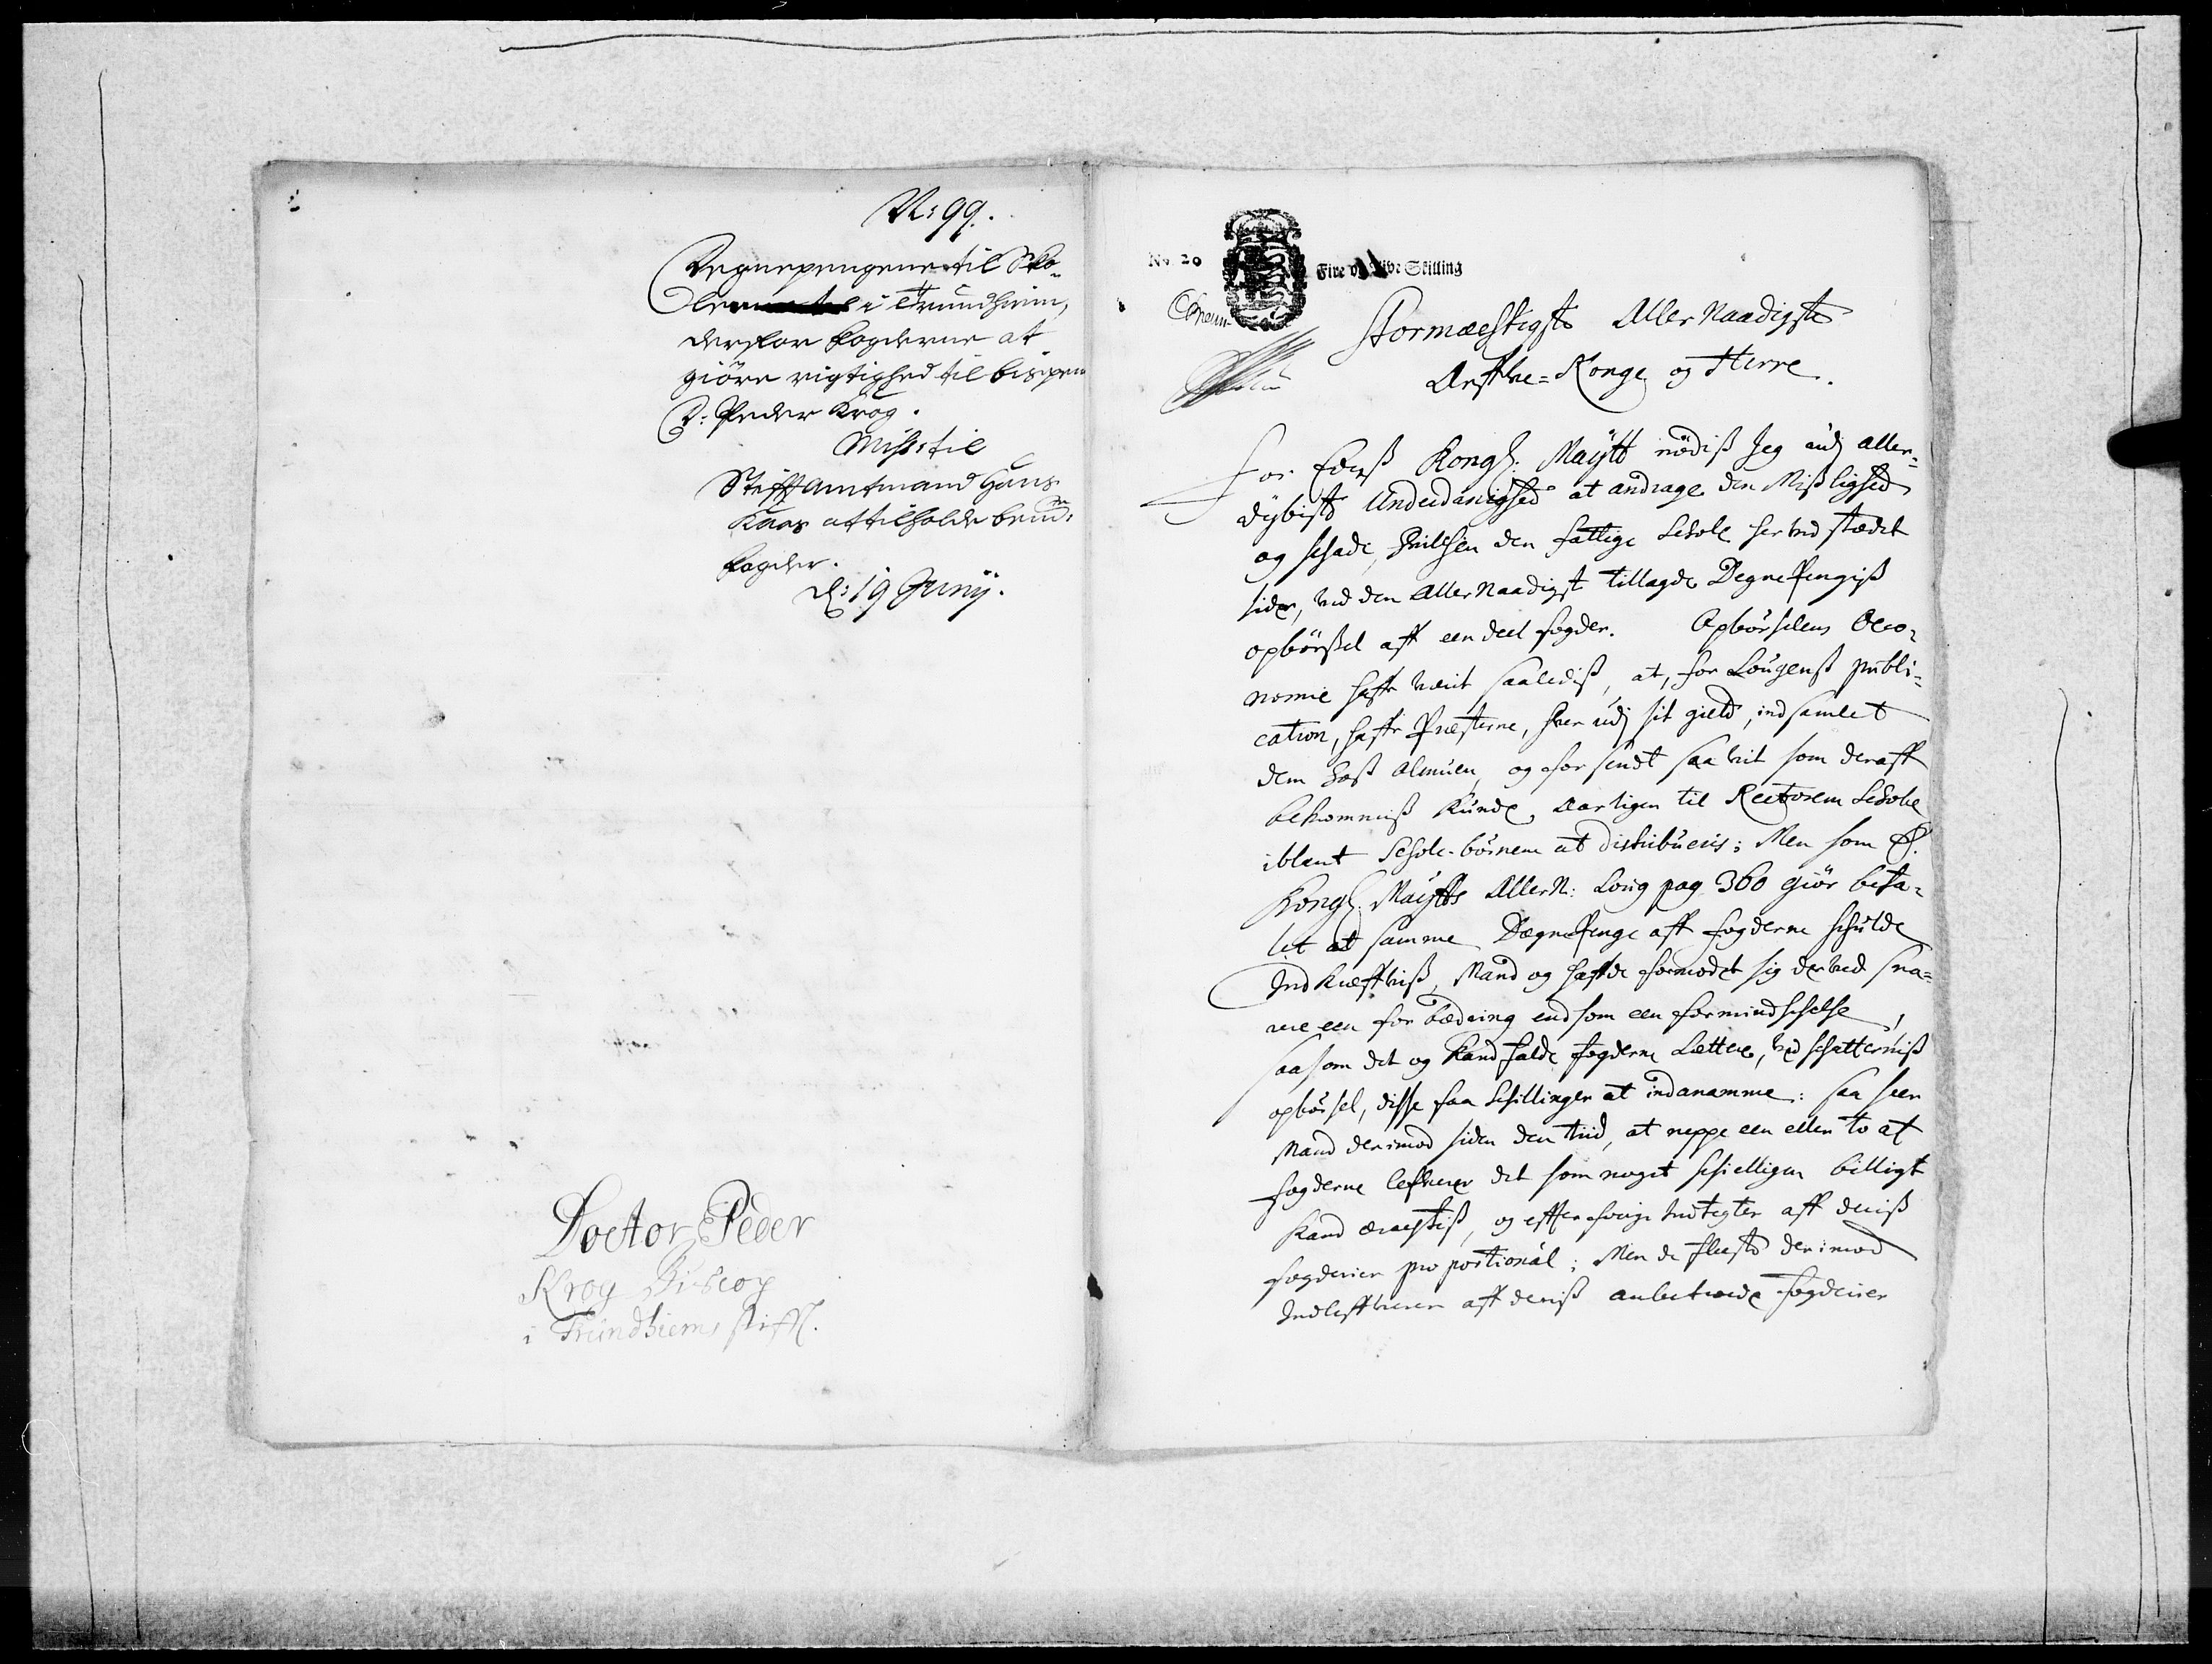 N: 99.
Degnepengene til Sko-
len i Trundhiem,
derfor fogderne at
giöre rigtighed til bispen
D: Peder Krog.
Miss: til
Stifftamtmand Hans
Kaas at tilholde bemte:
fogder.
d: 19 Junij.
Doctor Peder
Krog Biscop
i Trundhiems stifft.
No. 20
Fire oc Tive Skilling
Stormæchtigste Aller Naadigste
Arffve-Konge og Herre.
ForEderß Kongl: Maytt nödiß Jeg udj aller-
dybiste Underdanighed at andrage den Mißlighed
og schade, hvilchen den fattige Schole her ved stædet
lider, ved den Aller Naadigst tillagde Degne Pengiß
opbörßel aff een deel fogder. Opbörselens Oeco-
nomie haffr verit saalediß, at, for Lougenß publi-
cation, haffr Præsterne, hver udj sit gield, indsamlet
dem hoß Almuen, og forsendt saa vit som deraff
bekommiß kunde, Aarligen til Rectorem Scholæ
iblant Schole-börnene at distribueris; Men som E.
Kongl: Maytts AllerN: Loug pag 360 giör befa-
let at samme Degne Penge aff fogderne schulde
Indkræffviß, Mand og haffde formodet sig derved sna-
rere een forbædring end som een formindschelse,
saasom det og kand falde fogderne Lættere, ved schatterniß
opbörsel, disse faa Schillinger at indanamme: saa seer
Mand derimod siden den tiid, at neppe een eller to af
fogderne lefverer det som noget schielligen billigt
kand eractiß, og effter forige Indtegter aff deniß
fogderier proportional; Men de fleeste derimod
Indleffverer aff deriß anbetroede fogderier